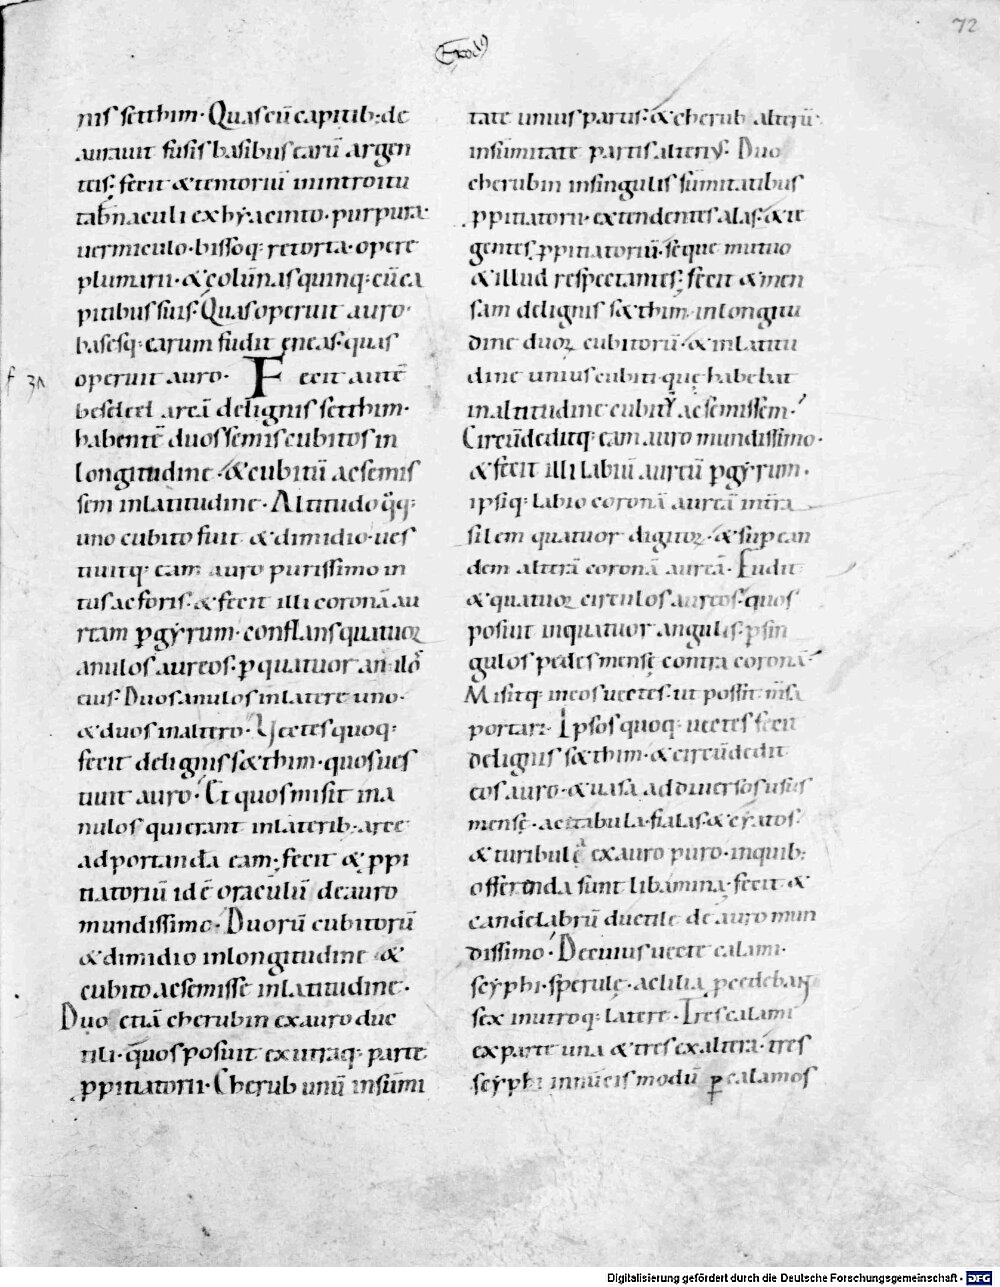 72
Exod9
nis setthim · Quas cū capitib; de
aurauit fusis basibus earū argen
teis; fecit & tentoriū in introitu
tab̄naculi ex hẏacinto · purpura ·
uermiculo · bissoq; retorta · opere
plumarii · & colūnas quinq; cū ca
pitibus suis · Quas operuit auro ·
basesq; earum fudit eneas · quas
operuit auro · Fecit autē
beseleel arcā de lignis setthim ·
habentē duos semis cubitos in
longitudine · & cubitū ac semis
sem in latitudine · Altitudo q̄q;
uno cubito fuit & dimidio · ues
tiuitq; eam auro purissimo in
tus ac foris · & fecit illi coronā au
ream ꝑ gẏrum · conflans quatuor
anulos aureos · ꝑ quatuor angulos
eius · Duos anulos in latere uno ·
& duos in altero · Vectes quoq;
fecit de lignis s&thim · quos ues
tiuit auro · Et quos misit in a
nulos qui erant in laterib; arce
ad portandā eam; fecit & ꝓpi
tiatoriū id ē oraculū de auro
mundissimo · Duorū cubitorū
& dimidio in longitudine &
cubito ac semisse in latitudine ·
Duo etiā cherubin ex auro duc
tili · quos posuit ex utraq; parte
ꝓpitiatorii · Cherub unū in sūmi
f 37
tate unius partis · & cherub alterū
in sūmitate partis alteri9 · Duo
cherubin in singulis sūmitatibus
ꝓpitiatorii · extendentes alas · & te
gentes ꝓpitiatoriū · seque mutuo
& illud respectantes; fecit & men
sam de lignis s&thim in longitu
dine duoꝝ cubitorū · & in latitu
dine unius cubiti · quę habebat
in altitudine cubitū ac semissem ·
Circūdeditq; eam auro mundissimo ·
& fecit illi labiū aureū ꝑ gẏrum ·
ipsiq; labio coronā aureā interra
silem quatuor digitoꝝ · & sup ean
dem alterā coronā aureā · Fudit
& quatuor circulos aureos · quos
posuit in quatuor angulis · ꝑ sin
gulos pedes mensę contra coronā ·
Misitq; in eos uectes · ut possit msa
portari · Ipsos quoq; uectes fecit
de lignis s&thim · & circūdedit
eos auro · & uasa ad diuersos usus
mensę · acetabula · fialas · & cẏatos ·
& turibula ex auro puro · in quib;
offerenda sunt libamina · fecit &
candelabrū ductile de auro mun
dissimo · De cuius uecte calami ·
scẏphi · sperulę · ac lilia ꝓcedebant
sex in utroq; latere · Tres calami
ex parte una & tres ex altera · tres
scẏphi in nucis modū ꝑ calamos
Digitalisierung gefördert durch die Deutsche Forschungsgemeinschaft - DFG